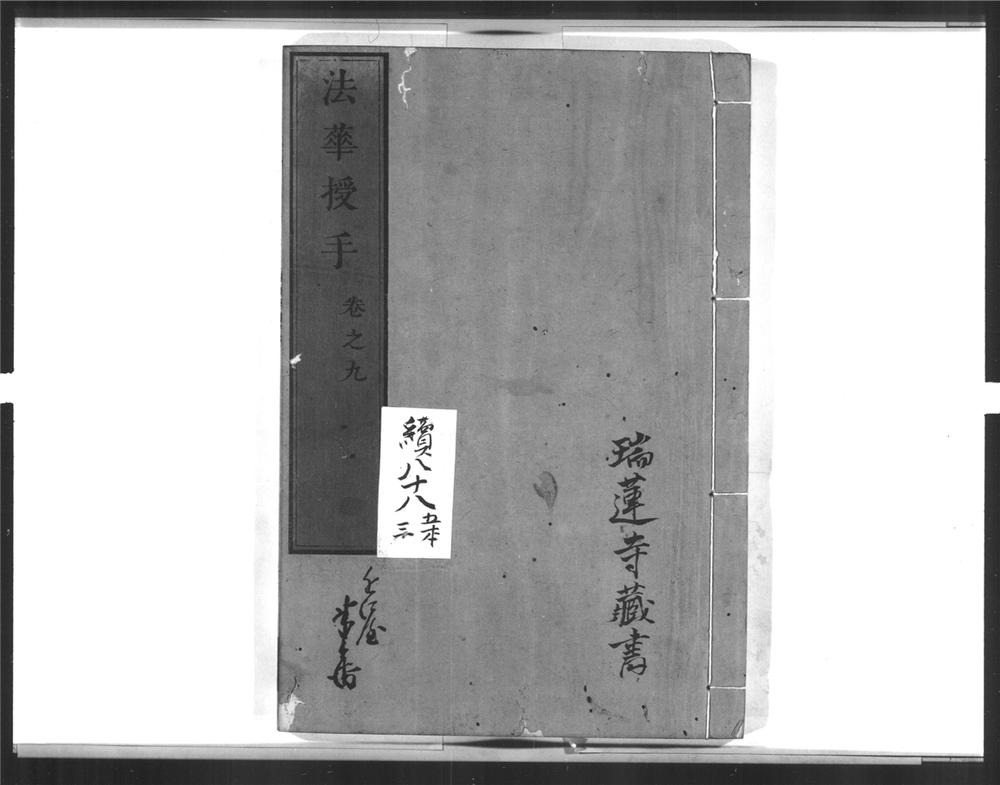 瑞蓮寺藏書
法華授手
卷之九
續八十八
五本
三